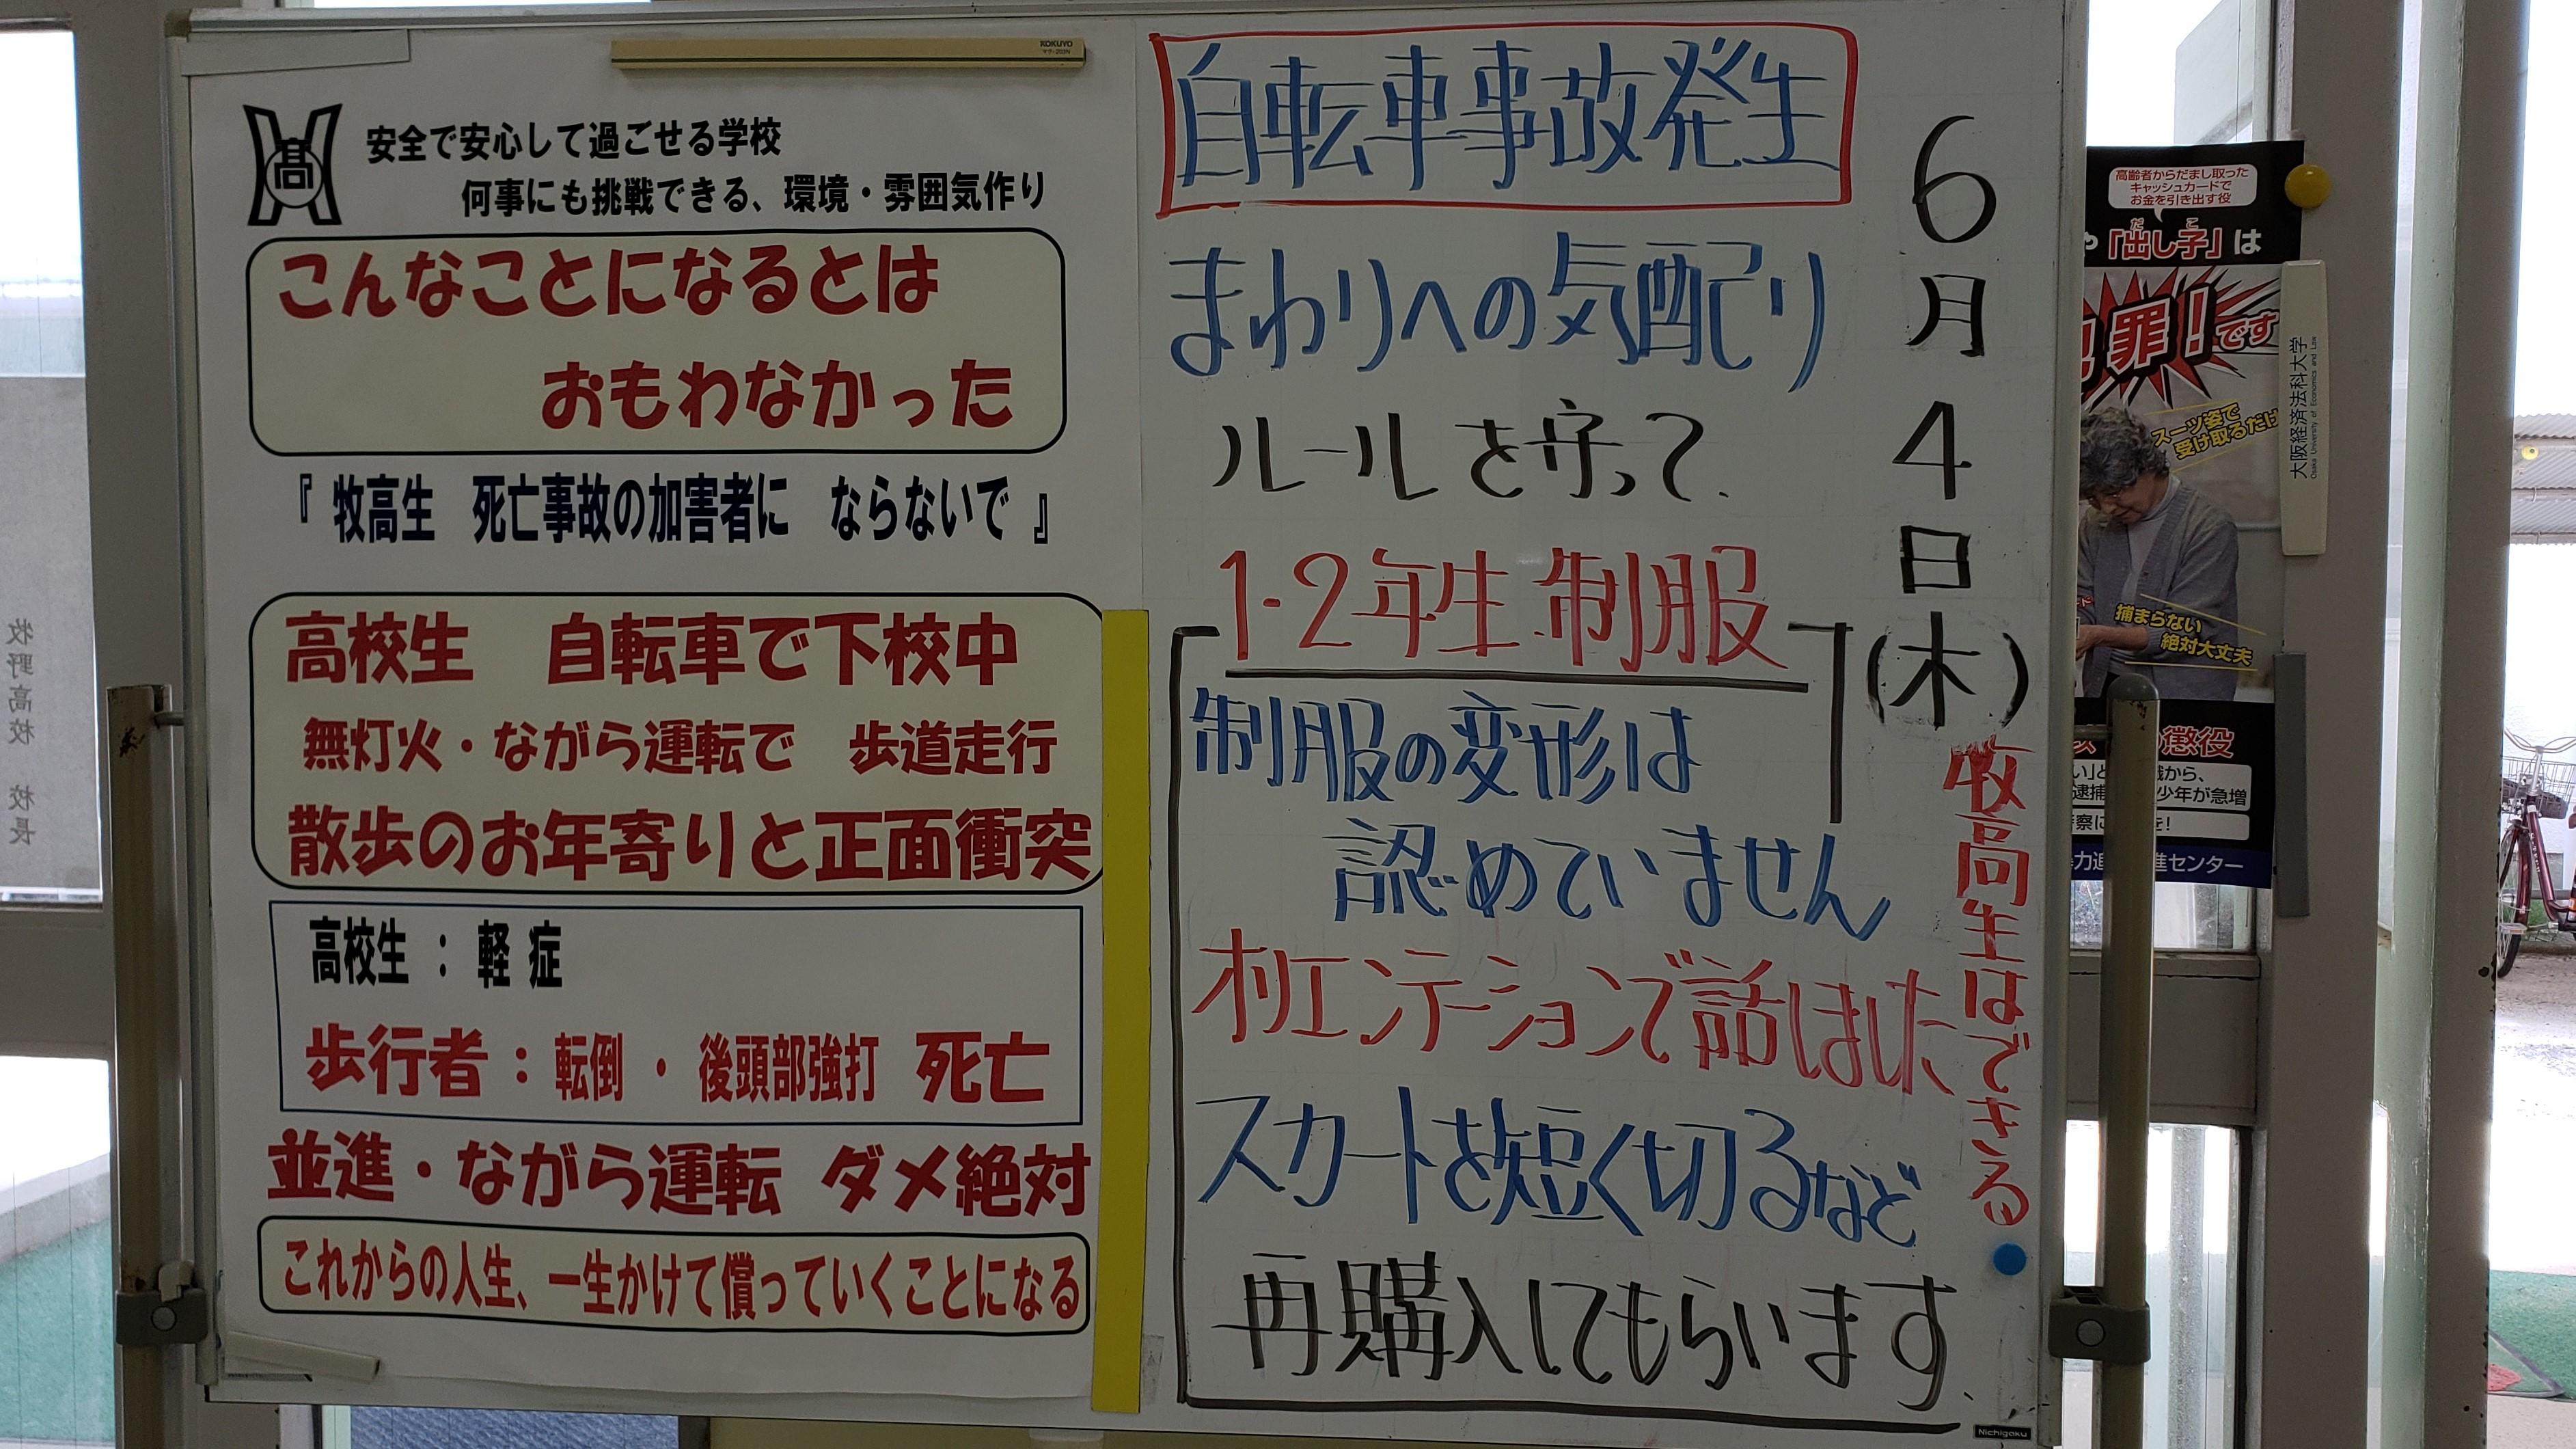 KOKUYO
高
安全で安心して過ごせる学校
何事にも挑戦できる、環境・雰囲気作り
こんなことになるとは
おもわなかった
『 牧高生　死亡事故の加害者に　ならないで 』
高校生　自転車で下校中
無灯火・ながら運転で　歩道走行
散歩のお年寄りと正面衝突
高校生 ： 軽 症
歩行者 ： 転倒 ・ 後頭部強打 死亡
並進・ながら運転 ダメ絶対
これからの人生、一生かけて償っていくことになる
6月4日(木)
牧高生はできる
自転車事故発生
まわりへの気配り
ルールを守って
1・2年生 制服
制服の変形は
認めていません
オリエンテーションで話しました
スカートを短く切るなど
再購入してもらいます
Nichigaku
高齢者からだまし取った
キャッシュカードで
お金を引き出す役
や「出し子」は
だ こ
罪！です
スーツ姿で
受け取るだけ
捕まらない
絶対大丈夫
懲役
から、
逮捕
少年が急増
センター
大阪経済法科大学
Osaka University of Economics and Law
牧野高校　校長